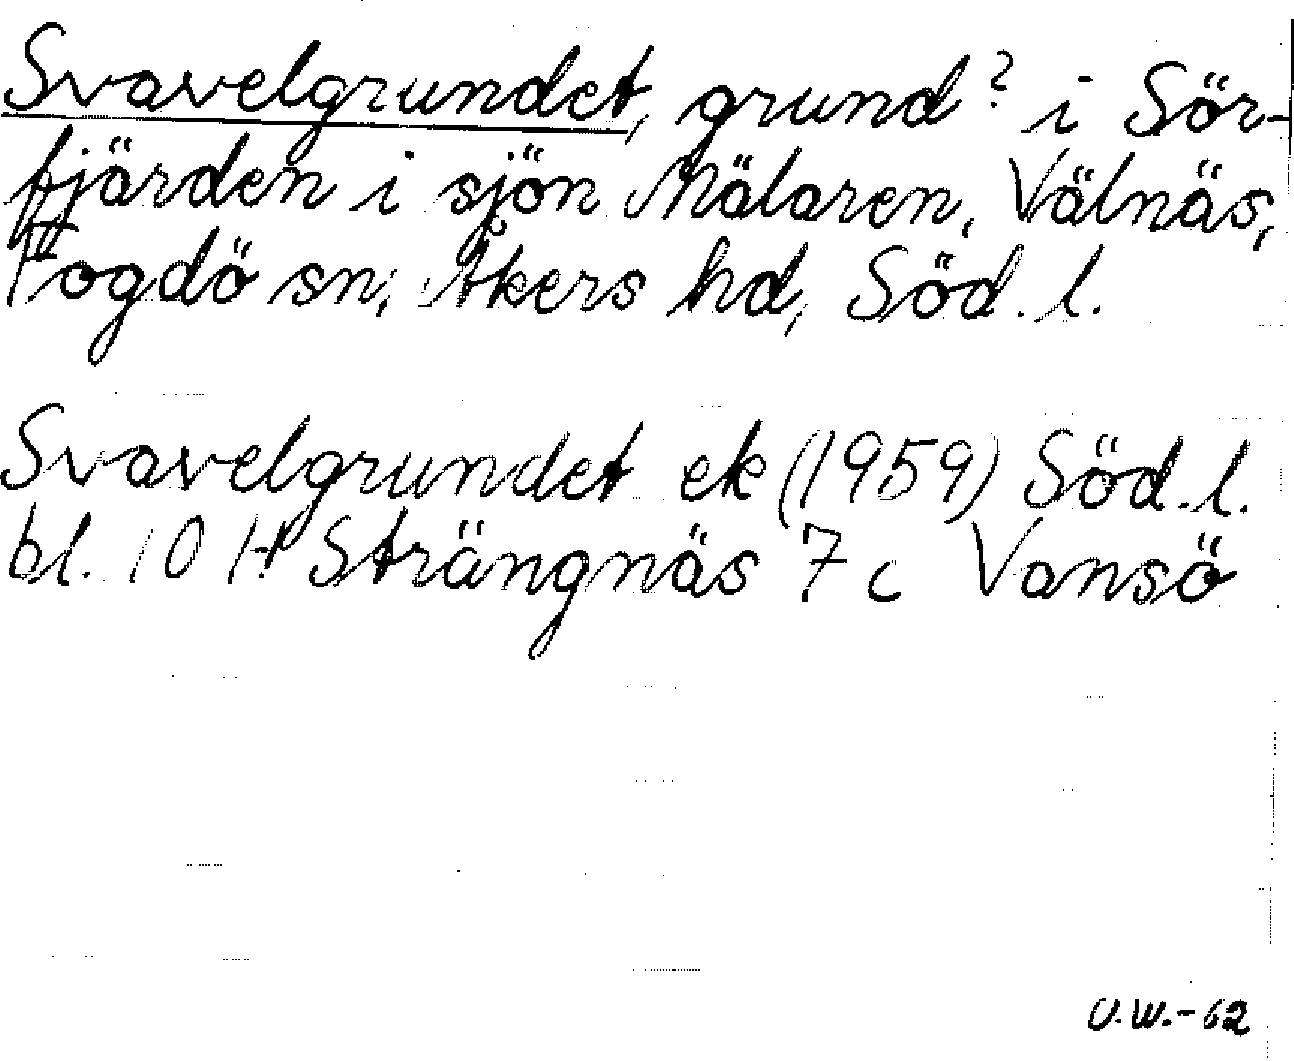 Svavelgrundet, grund? i Sör-
fjärden i sjön Mälaren, Välnäs,
Fogdö sn; Åkers hd, Söd. l.
Svavelgrundet ek (1959) Söd. l.
bl. 10 H Strängnäs 7 c Vansö
U.W.-62